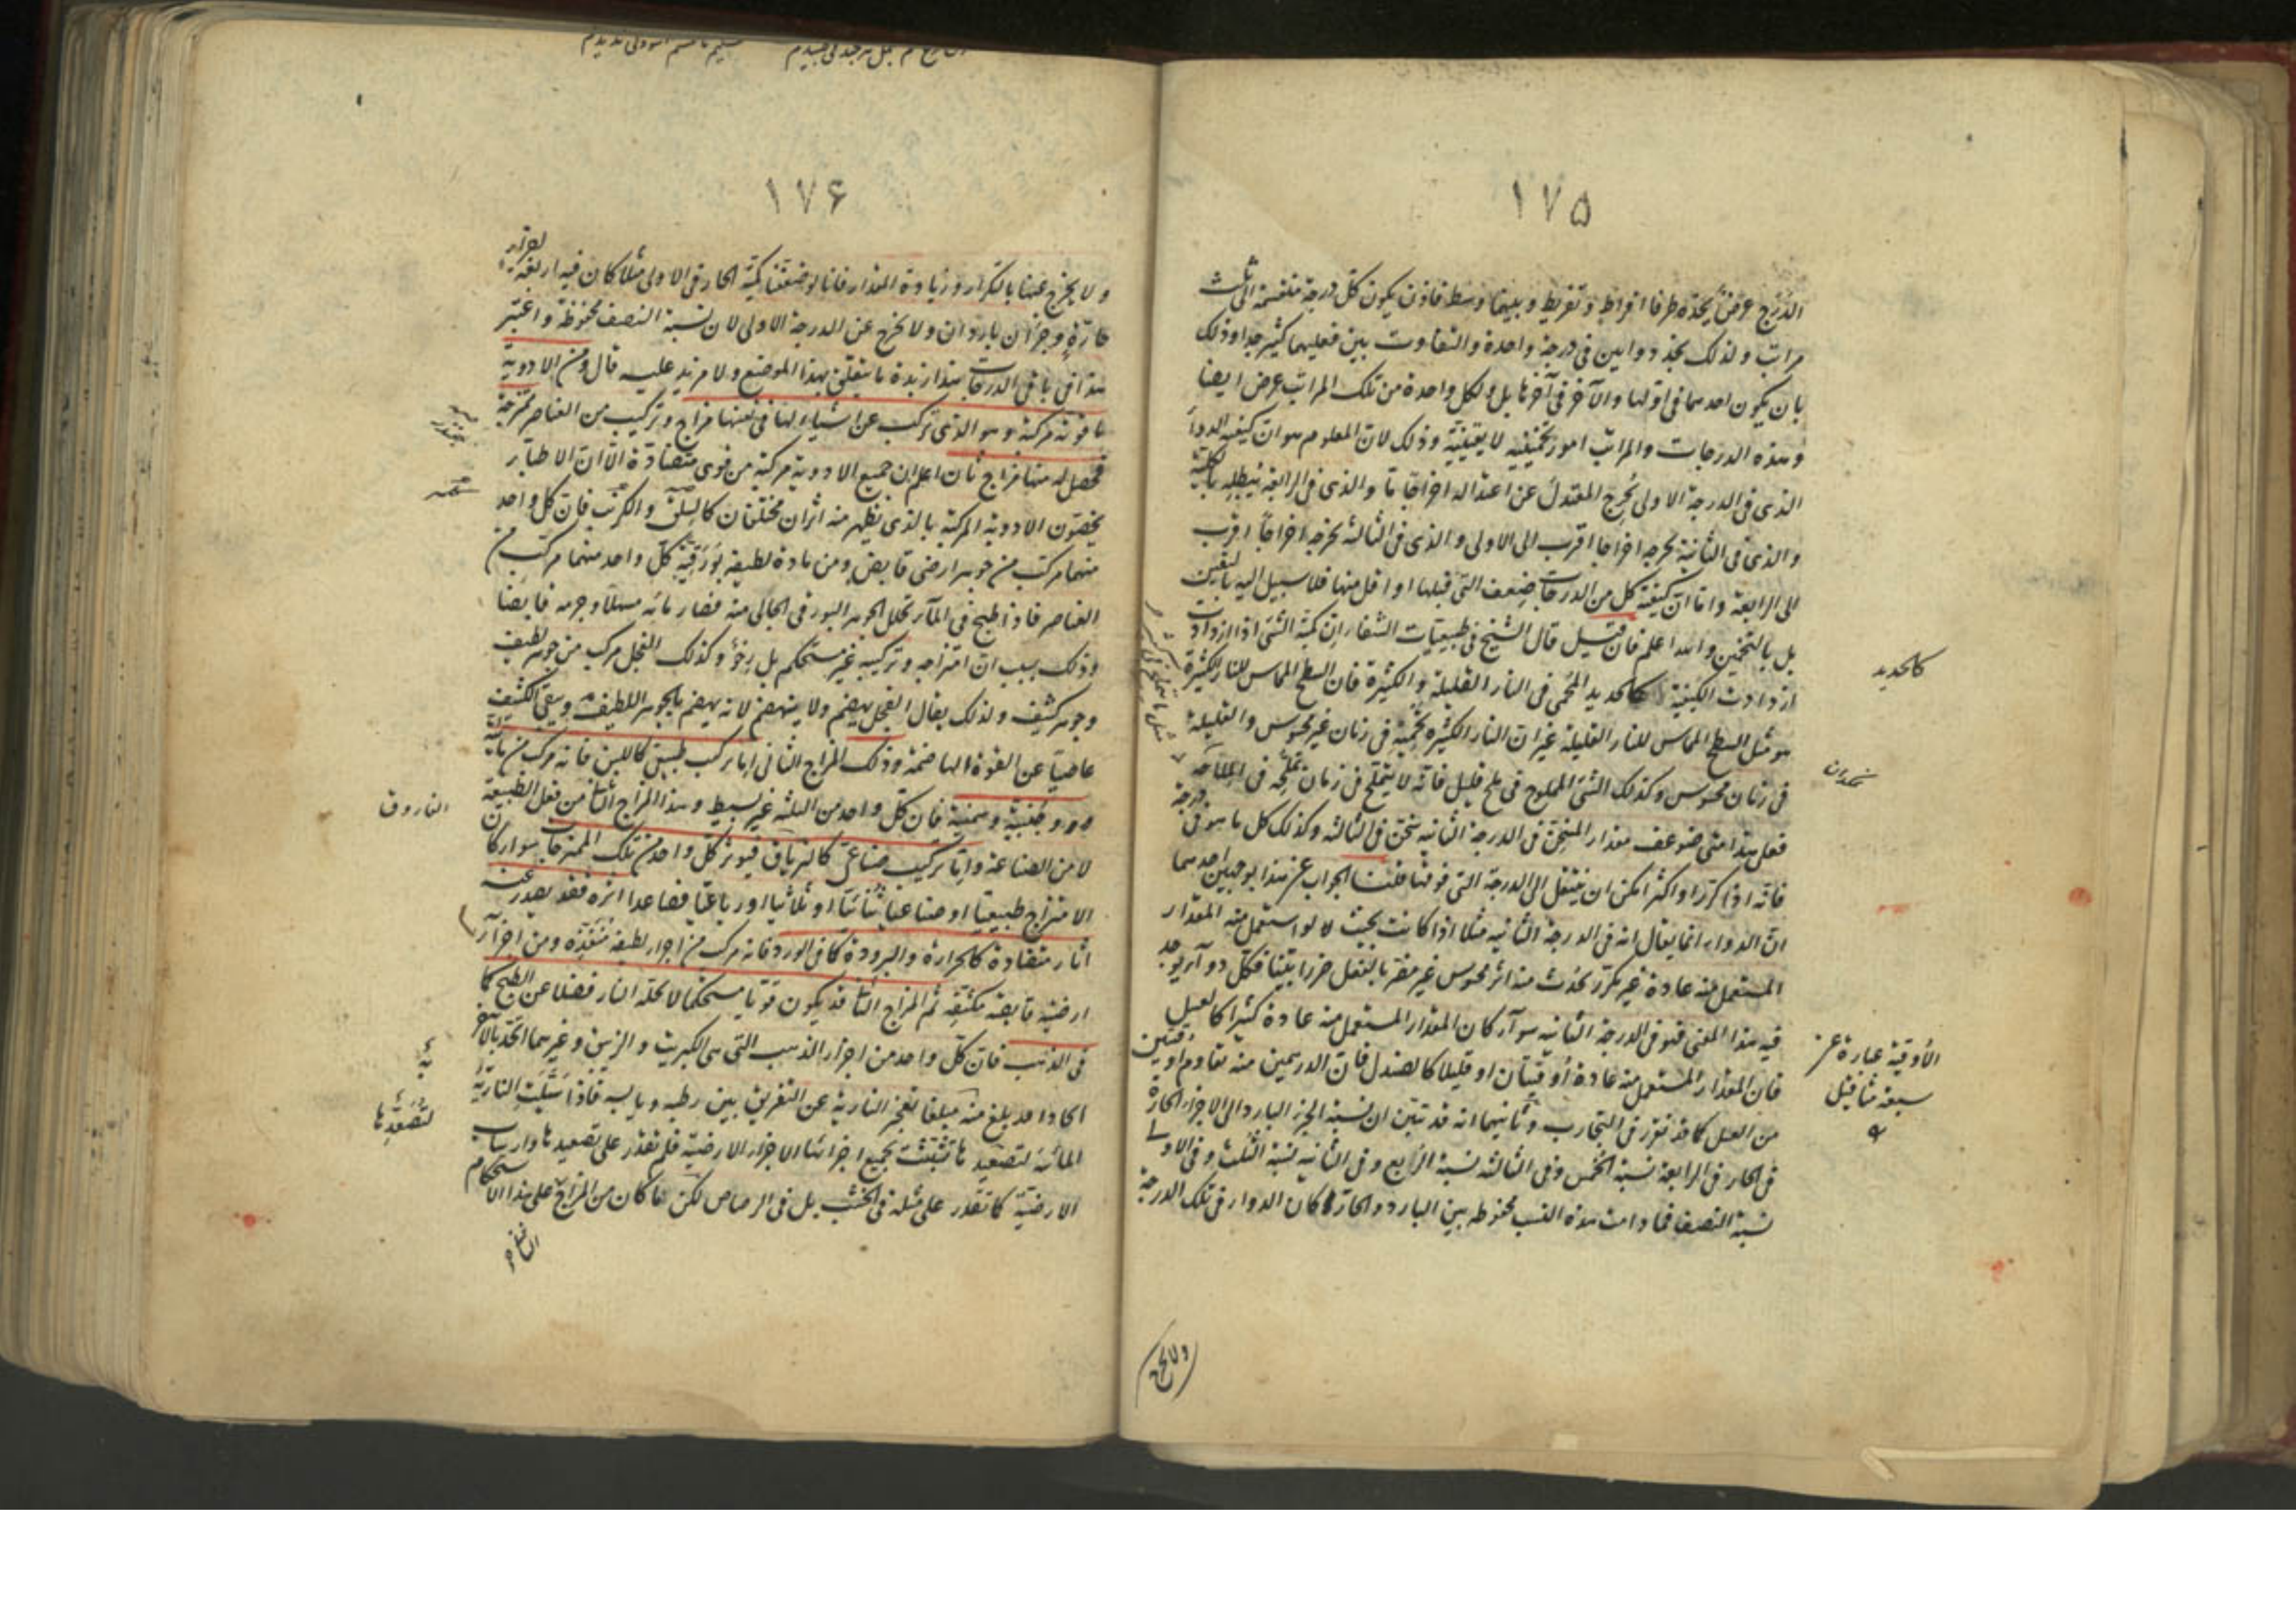 ١٧٥
الدرج عرض يحده طرفا افراط وتفريط وبينهما وسط فاذن يكون كل درجة منقسمة الى ثلث
مراتب ولذلك نجد دوايين فى درجة واحدة والتفاوت بين فعليهما كثير جدا وذلك
بان يكون احدهما فى اولها والآخر فى آخرها بل ولكل واحدة من تلك المراتب عرض ايضا
وهذه الدرجات والمراتب امور تخمينية لا يقينية وذلك لان المعلوم هو ان كيفية الدواء
الذى فى الدرجة الاولى يُخرج المعتدل عن اعتداله اخراجا ما والذى فى الرابعة يبطله بالكلية
والذى فى الثانية يخرجه اخراجا اقرب الى الاولى والذى فى الثالثة يخرجه اخراجا اقرب
الى الرابعة واما ان كيفية كل من الدرجات ضعف التى قبلها او اقل منها فلا سبيل اليه باليقين
بل بالتخمين والله اعلم فان قيل قال الشيخ فى طبيعيات الشفاء ان كمية الشئ اذا ازدادت
ازدادت الكيفية كالحديد المُحمى فى النار القليلة والكثيرة فان السطح المماس للنار الكثيرة
هو مثل السطح المماس للنار القليلة غير ان النار الكثيرة تحميه فى زمان غير محسوس والقليلة
فى زمان محسوس وكذلك الشئ المملوح فى ملح قليل فانه لا يتملح فى زمان تملحه فى الملاحة
فعلى هذا متى ضوعف مقدار المسخن فى الدرجة الثانية سخن فى الثالثة وكذلك كل ما هو فى درجة
فانه اذا كرر او اكثر امكن ان ينتقل الى الدرجة التى فوقها قلنا الجواب عن هذا بوجهين احدهما
ان الدواء انما يقال انه فى الدرجة الثانية مثلا اذا كانت بحيث لو استعمل منه المقدار
المستعمل منه عادة غير مكرر يحدث منه اثر محسوس غير مضر بالفعل ضررا بينا فكل دواء يوجد
فيه هذا المعنى فهو فى الدرجة الثانية سواء كان المقدار المستعمل منه عادة كثيرا كالعسل
فان المقدار المستعمل منه عادة اُوقيتان او قليلا كالصندل فان الدرهمين منه تقاوم اوقيتين
من العسل كما قد تقرر فى التجارب وثانيهما انه قد تبين ان نسبة الجزء البارد الى الاجزاء الحارة
فى الحار فى الرابعة نسبة الخمس وفى الثالثة نسبة الربع وفى الثانية نسبة الثلث وفى الاولى
نسبة النصف فما دامت هذه النسب محفوظه بين البارد والحار كان الدواء فى تلك الدرجة
كالحديد
الاوقية عبارة عن
سبعة مثاقيل
ولا يخرج
١٧۶
ولا يخرج عنها بالتكرار وزيادة المقدار فانا لو ضعفنا كمية الحار فى الاولى مثلا كان فيه اربعة اجزاء
حارة وجزآن باردان ولا يخرج عن الدرجة الاولى لان نسبة النصف محفوظة واعتبر
هذا فى باقى الدرجات هذا زبدة ما يتعلق بهذا الموضع ولا مزيد عليه قال ومن الادوية
ما قوته مركبة وهو الذى تركب عن اشياء لها فى نفسها مزاج وتركيب من العناصر ممتزجة
فحصل له منها مزاج ثان اعلم ان جميع الادوية مركبة من قوى متضادة الا ان الاطباء
يخصون الادوية المركبة بالذى يظهر منه اثران مختلفان كالسلق والكرنب فان كل واحد
منهما مركب من جوهر ارضى قابض ومن مادة لطيفة بورقية كل واحد منهما مركب من
العناصر فاذا طبخ فى الماء تحلل الجوهر البورقى الجالى منه فصار مائه مسهلا وجرمه قابضا
وذلك بسبب ان امتزاجه وتركيبه غير مستحكم بل رخو وكذلك الفجل مركب من جوهر لطيف
وجوهر كثيف ولذلك يقال الفجل يهضم ولا ينهضم لانه يهضم بالجوهر اللطيف ويبقى الكثيف
عاصيا عن القوة الهاضمة وذلك المزاج الثانى اما تركيب طبيعى كاللبن فانه مركب من مائية
وجبنية وسمنية فان كل واحد من الثلثة غير بسيط وهذا المزاج الثانى من فعل الطبيعة
لا من الصناعة واما تركيب صناعى كالترياق فيوثر كل واحد من تلك الممتزجات سواء كان
الامتزاج طبيعيا او صناعيا ثنائيا او ثلاثيا او رباعيا فصاعدا اثره فقد يصدر عنه
اثار متضادة كالحرارة والبرودة كما فى الورد فانه مركب من اجزاء لطيفة منفذة ومن اجزاء
ارضية قابضة مكثفة ثم المزاج الثانى قد يكون قويا مستحكما لا تحله النار فضلا عن الطبخ كما
فى الذهب فان كل واحد من اجزاء الذهب التى هى الكبريت والزيبق وغيرهما اتحد بالآخر
اتحادا قد بلغ منه مبلغا تعجز النارية عن التفريق بين رطبه ويابسه فاذا سيّلت النارية
المائية لتصعيدها تشبثت بجميع اجزائها الاجزاء الارضية فلم تقدر على تصعيدها وارساب
الارضية كما تقدر على مثله فى الخشب بل فى الرصاص لكن ما كان من المزاج على هذا الاستحكام
الفاروق
لتصعيدها